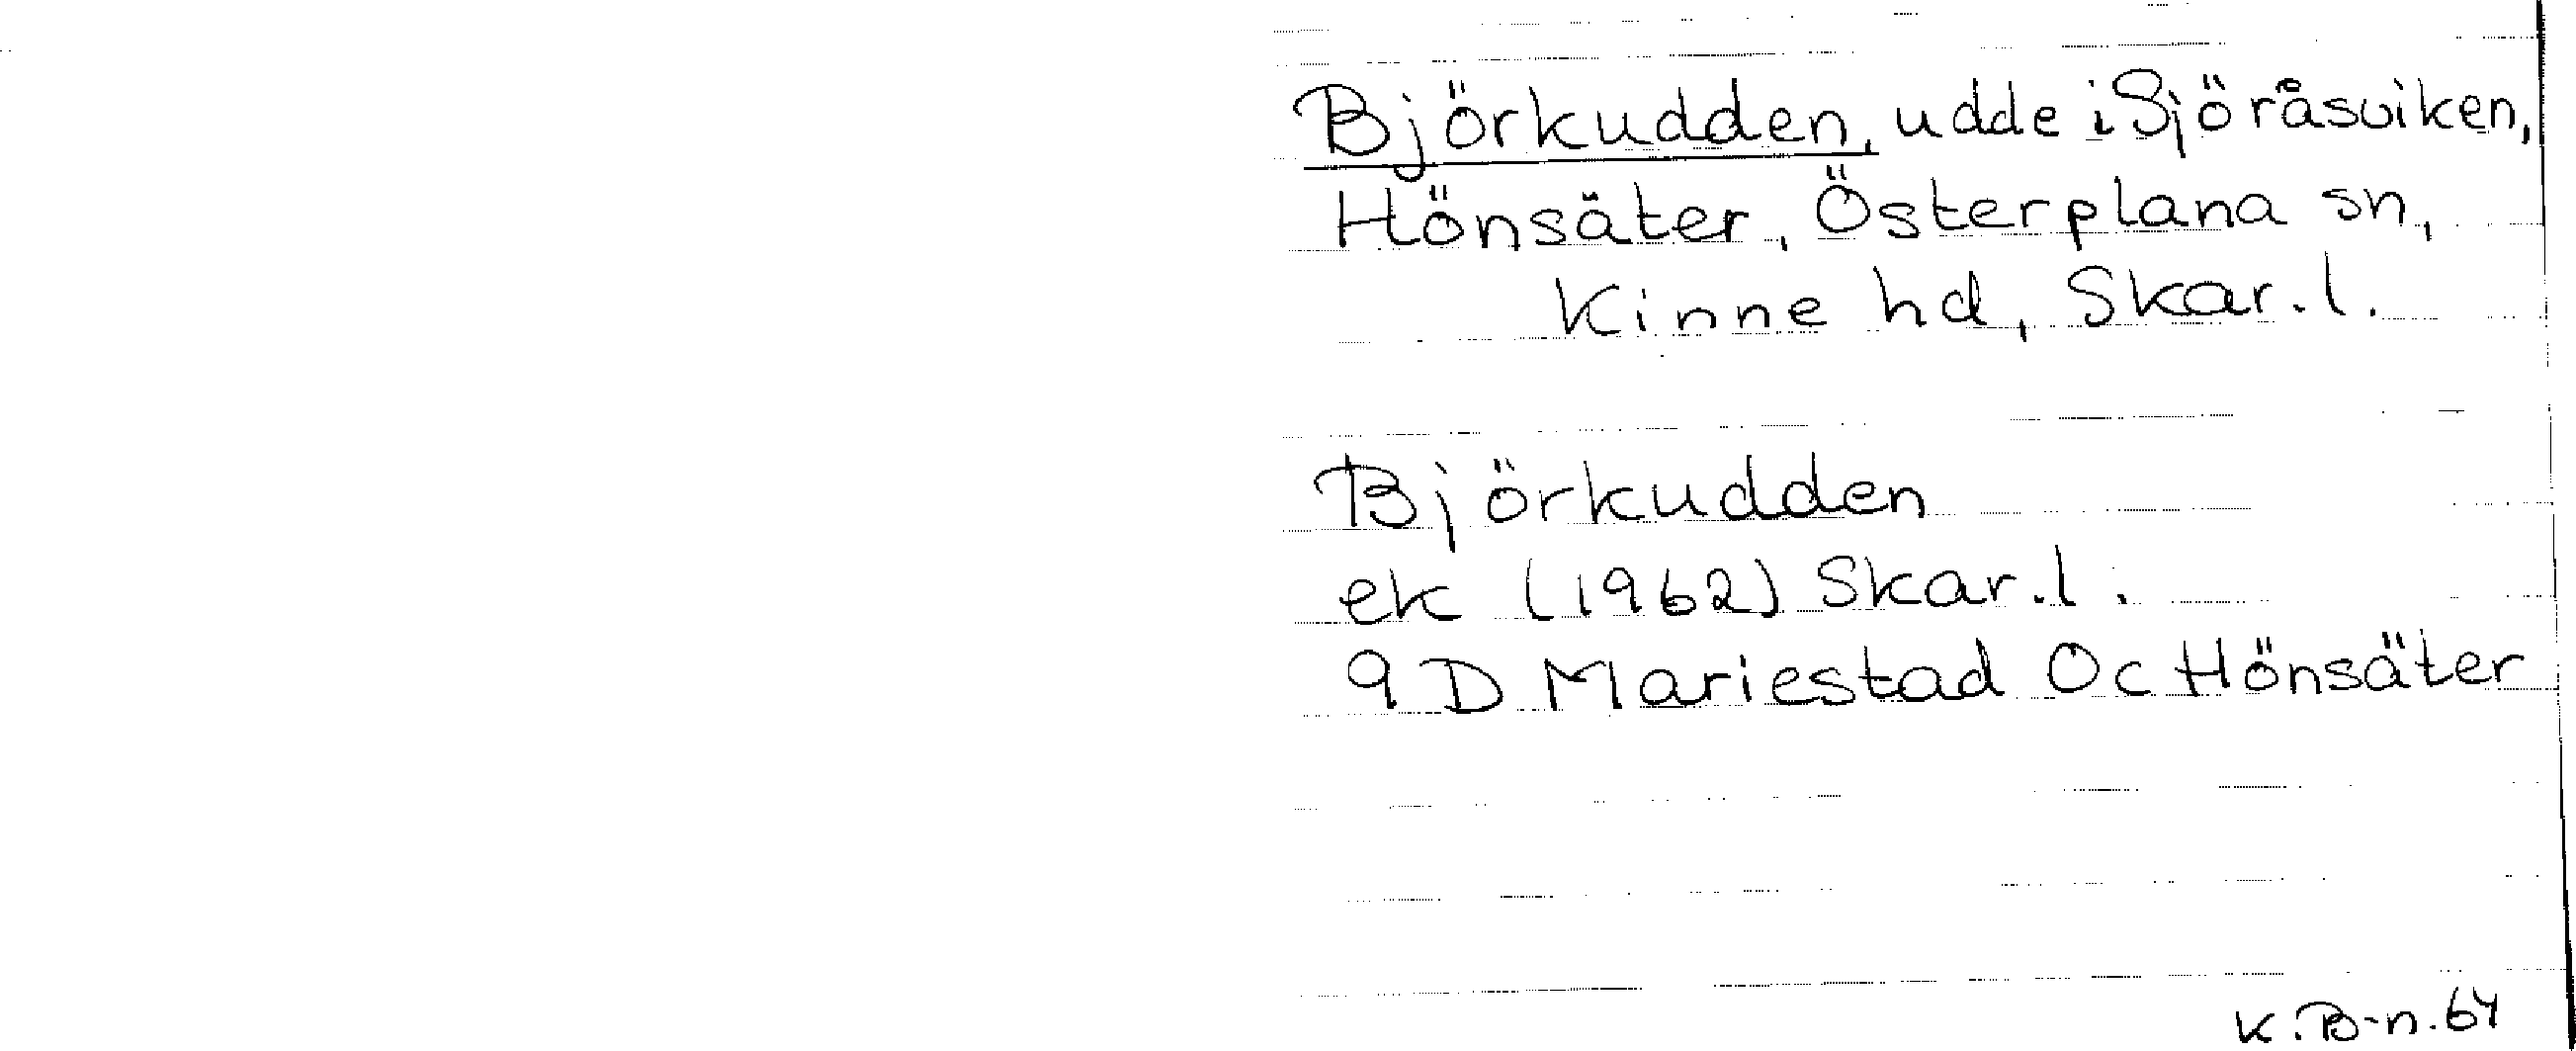 Björkudden, udde i Sjöråsviken,
Hönsäter, Österplana sn,
Kinne hd, Skar.l.
Björkudden
ek (1962) Skar.l.
9 D Mariestad Oc Hönsäter
K.B-n.64